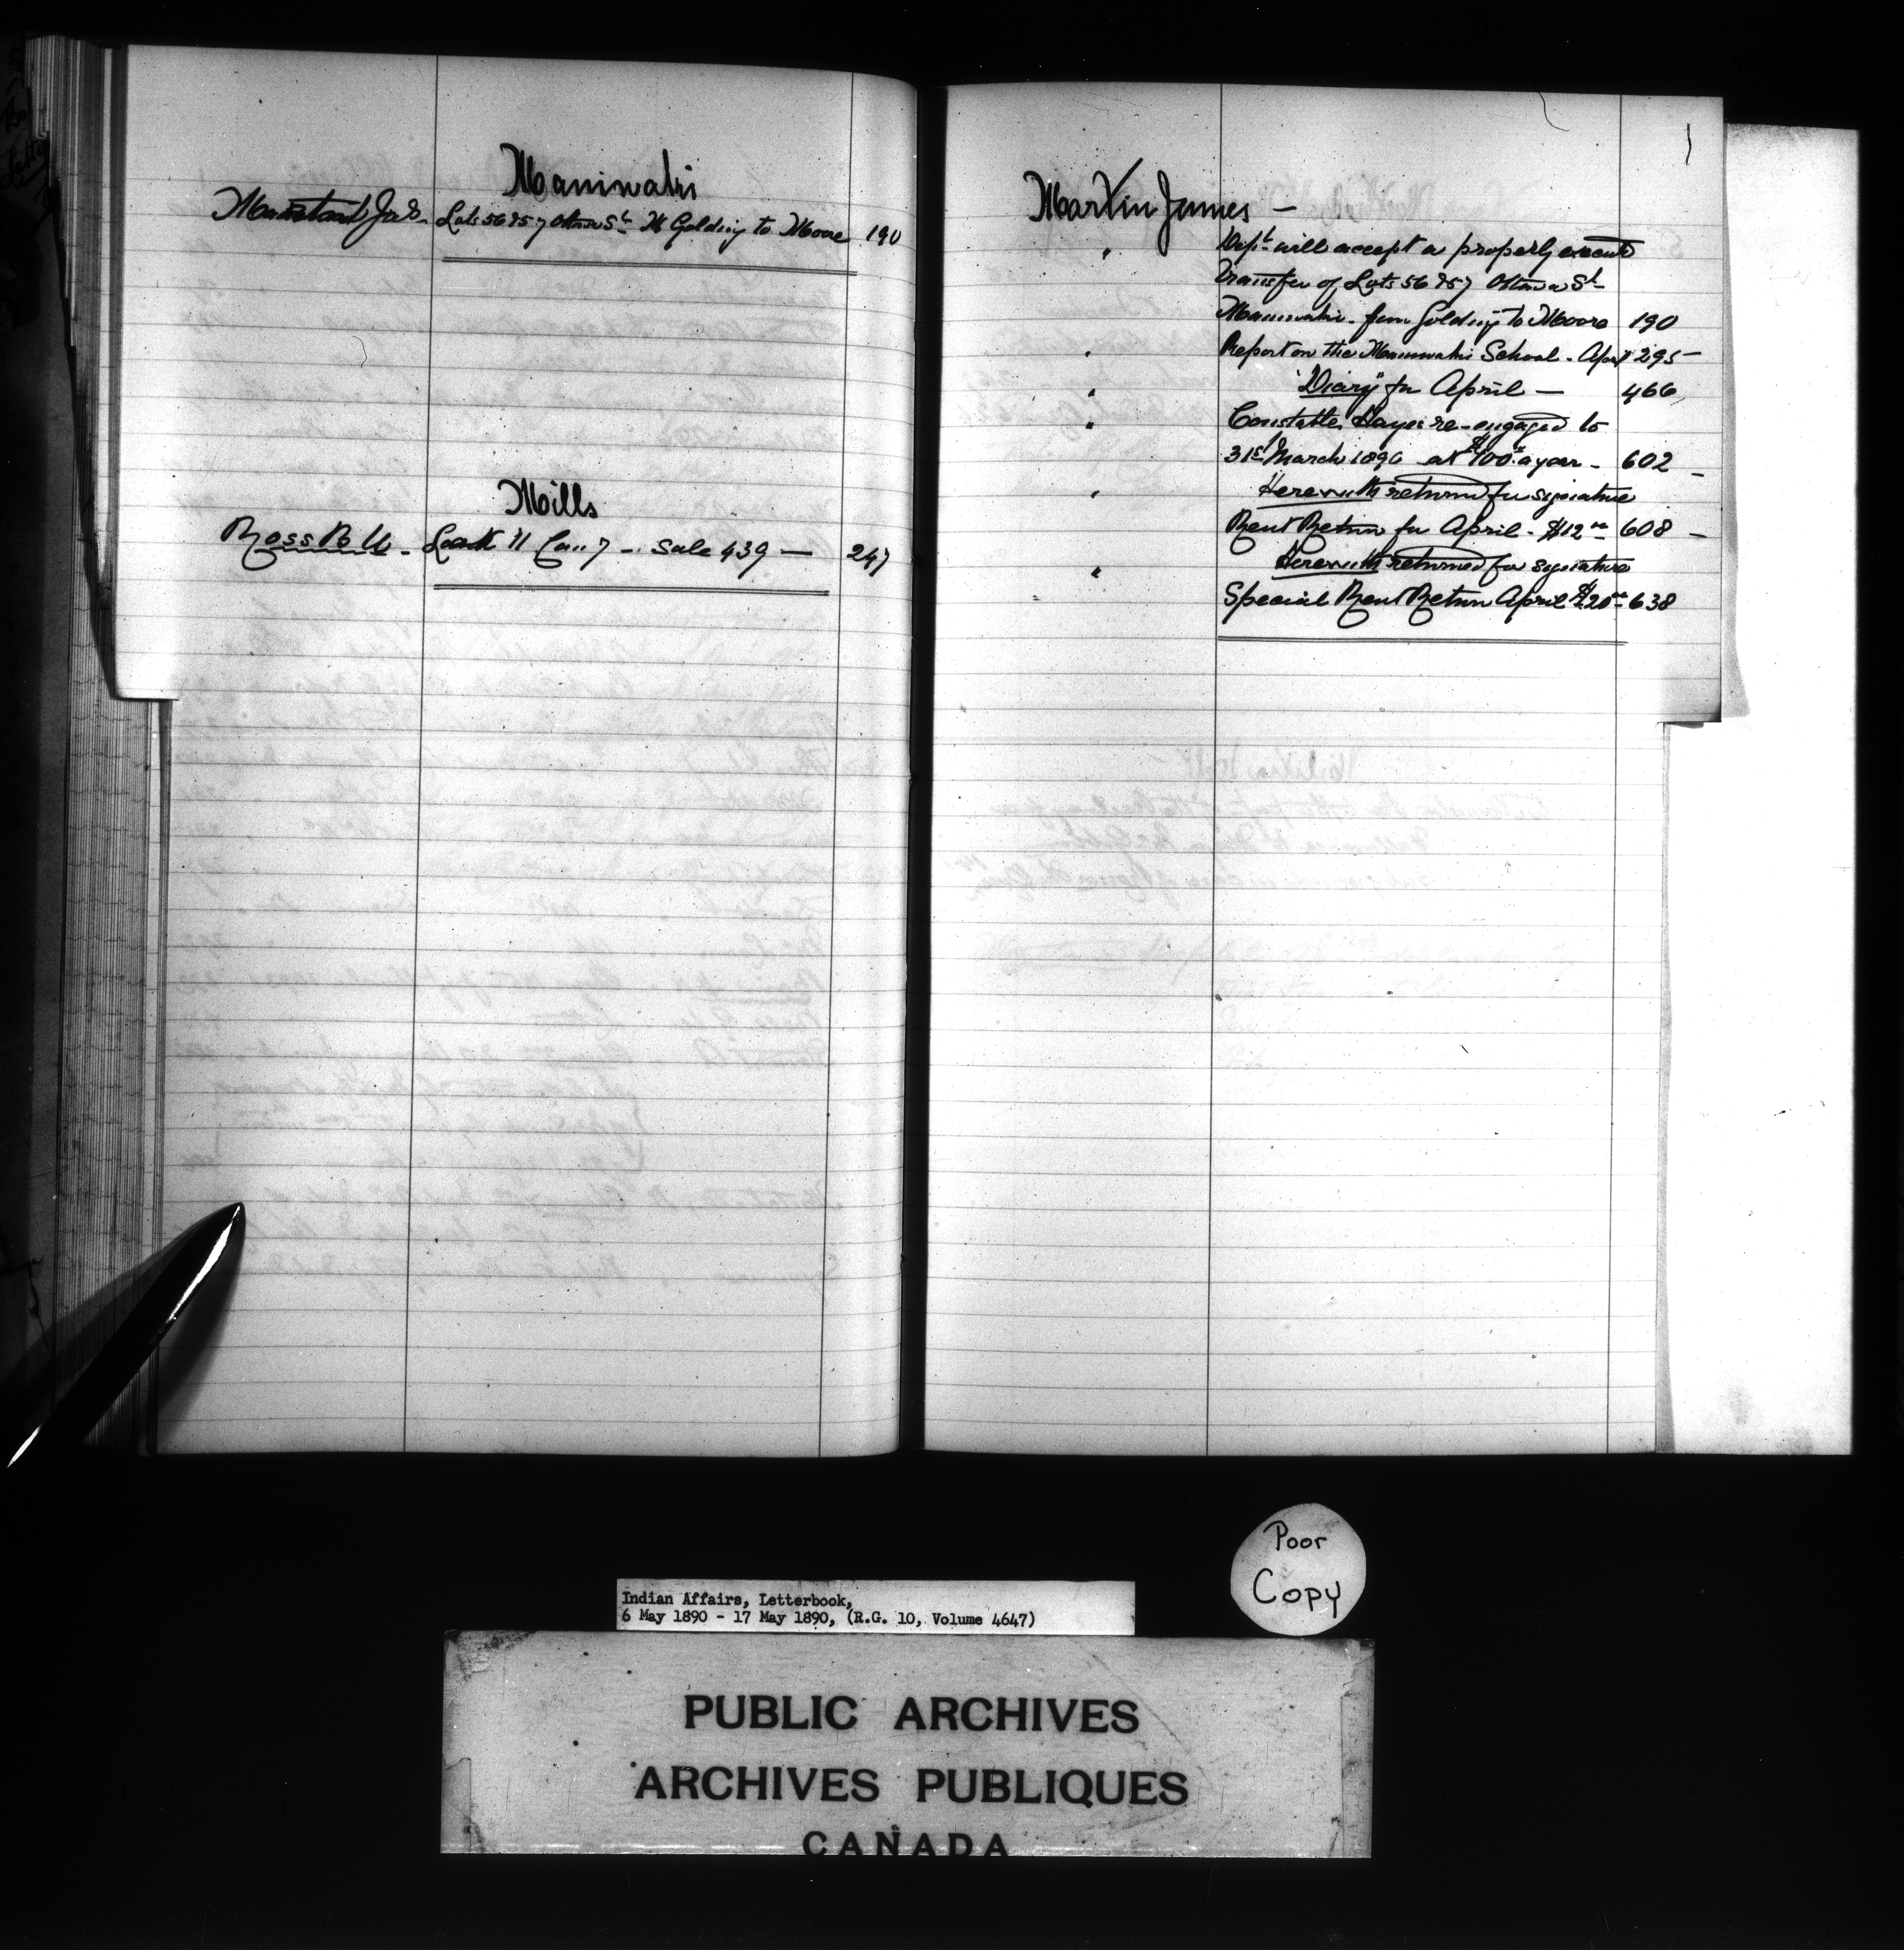 Maniwaki
Jas. Lots 56 & 57 Ottawa St. W Golding to Moore 190
Mills
Ross B W - Lot 11 Con 7 - Sale 439 — 247
Martin James —
" Dept will accept a properly execute
transfer of Lots 56 & 57 Ottawa St
Maniwaki - from Golding to Moore 190
" Report on the Maniwaki School - 295 —
" "Diary" for April — 466
" Constable Hayes re-engaged to
31st March 1890 at $100 a year - 602 —
" Herewith returned for signature
Rent Return for April - $12 608 —
" Herewith returned for signature
Special Rent Return April $20 638
Poor
Copy
Indian Affairs, Letterbook,
6 May 1890 - 17 May 1890, (R.G. 10, Volume 4647)
PUBLIC ARCHIVES
ARCHIVES PUBLIQUES
CANADA